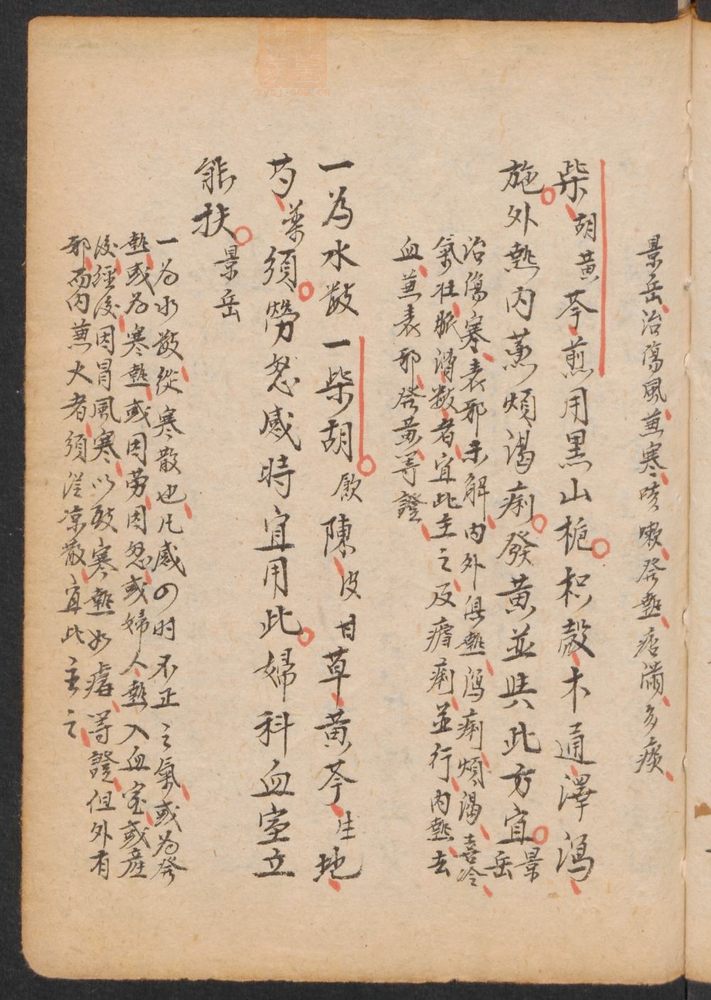 景岳治傷風兼寒咳嗽發熱痞滿多痰
柴胡黃芩煎用黑山梔枳殼木通澤瀉
施外熱内蒸煩渴痢發黃並與此方宜景岳
治傷寒表邪未解内外俱熱瀉痢煩渴喜冷
氣壯脈滑數者宜此主之及瘧痢並行内熱去
血兼表邪發黃等證
一為水數一柴胡飲陳皮甘草黃芩生地
芍藥須勞怒感時宜用此婦科血室立
能扶景岳
一為水數從寒散也凡感四時不正之氣或為發
熱或為寒熱或因勞因怒或婦人熱入血室或産
後經後因冒風寒以致寒熱如瘧等證但外有
邪而内兼火者須從涼散宜此主之